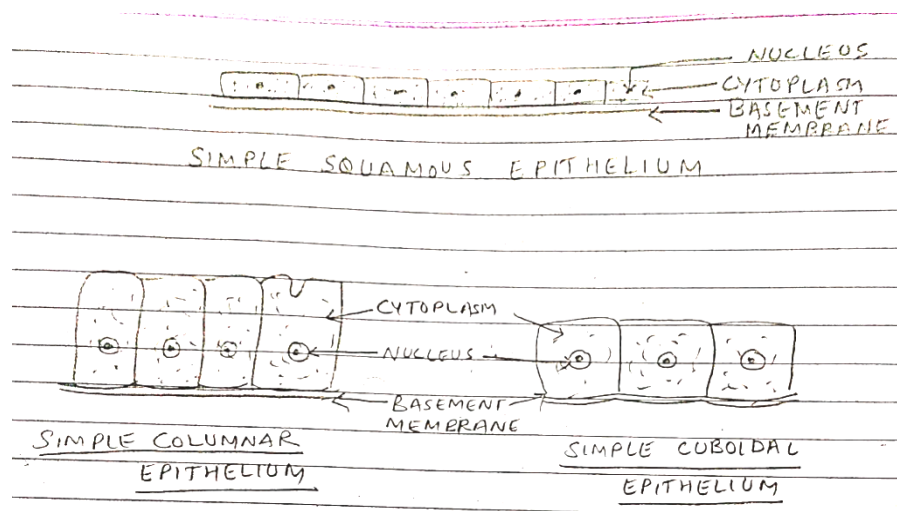 NUCLEUS
CYTOPLASM
BASEMENT
MEMBRANE
SIMPLE SQUAMOUS EPITHELIUM
CYTOPLASM
NUCLEUS
BASEMENT
MEMBRANE
SIMPLE COLUMNAR
EPITHELIUM
SIMPLE CUBOIDAL
EPITHELIUM